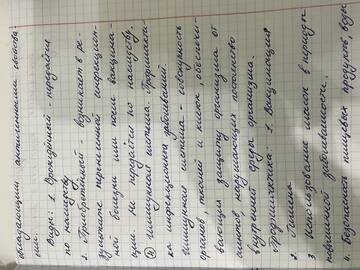 обладающими антигенными свойства-
ми.
Виды: 1. Врождённый - передаётся
по наследству
2. Приобретённый - возникает в ре-
зультате перенесённой инфекцион-
ной болезни или после вакцина-
ции. Не передаётся по наследству.
④ Иммунная система. Профилакти-
ка инфекционных заболеваний.
Иммунная система - совокупность
органов, тканей и клеток, обеспечи-
вающая защиту организма от
агентов, нарушающих постоянство
внутренней среды организма.
Профилактика: 1. Вакцинация
2. Гигиена
3. Использование масок в периоды
повышенной заболеваемости.
4. Безопасность пищевых продуктов, воды